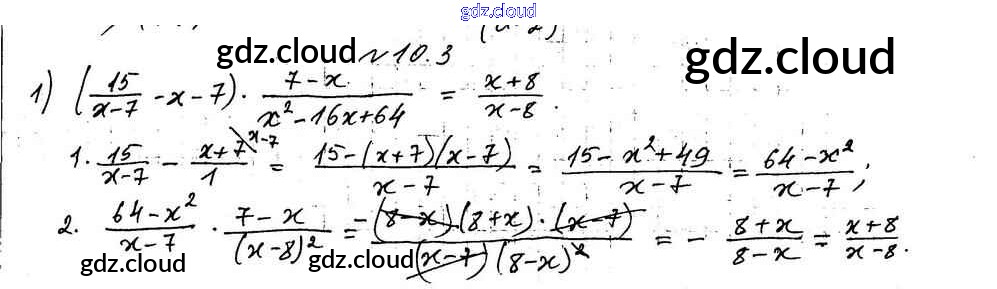 gdz.cloud
gdz.cloud №10.3 gdz.cloud
1) (15/(x-7) - x - 7) · (7-x)/(x²-16x+64) = (x+8)/(x-8).
1. 15/(x-7) - (x+7)/1 \x-7 = (15-(x+7)(x-7))/(x-7) = (15-x²+49)/(x-7) = (64-x²)/(x-7);
2. (64-x²)/(x-7) · (7-x)/(x-8)² = -(8-x)(8+x)·(x-7)/((x-7)(8-x)²) = - (8+x)/(8-x) = (x+8)/(x-8).
gdz.cloud gdz.cloud gdz.cloud